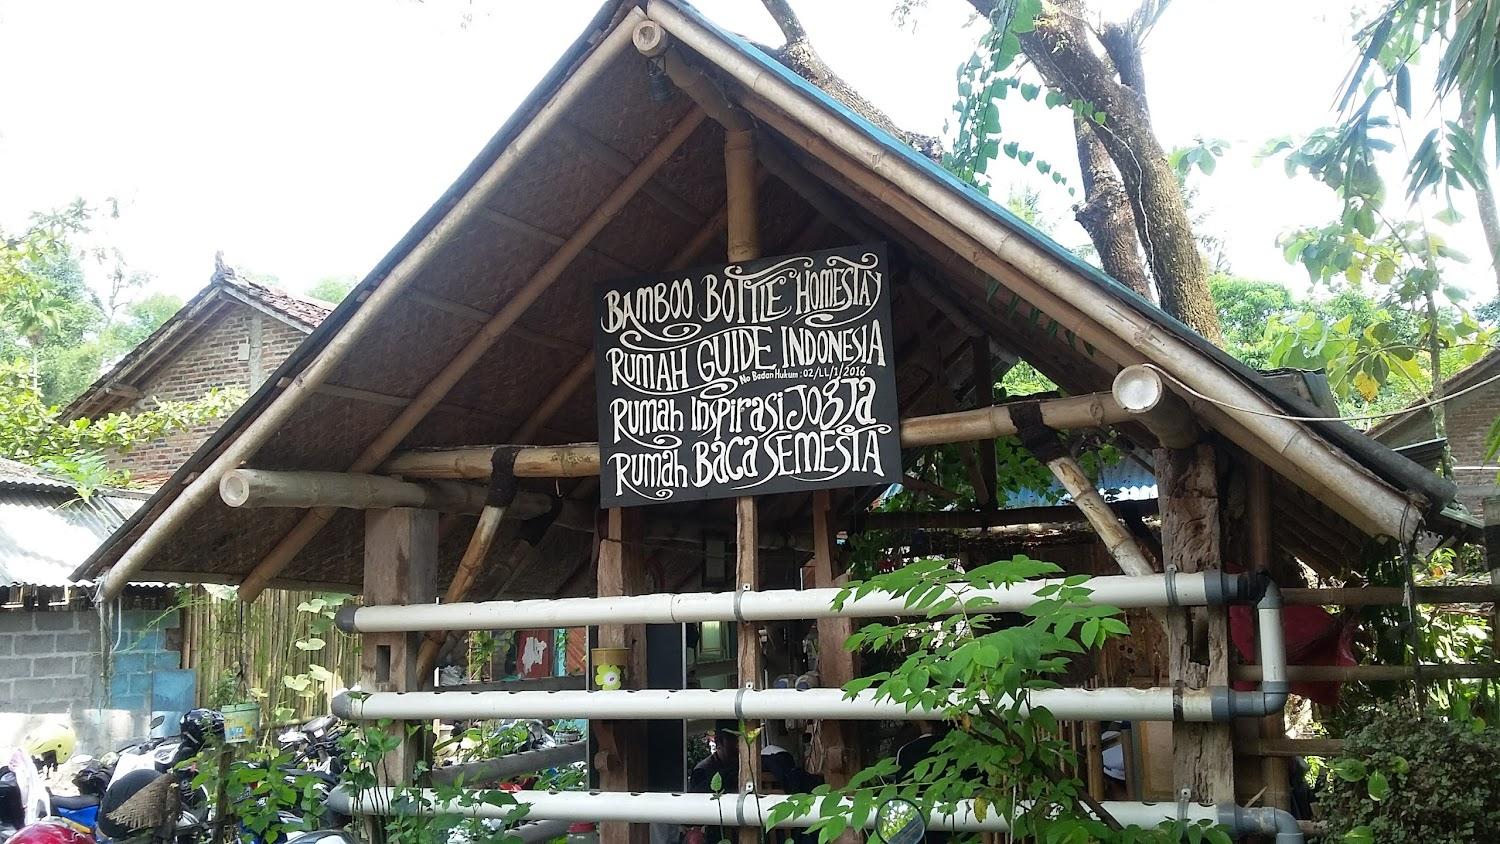 BAMBOO BOTTLE HOMESTAY
RUMAH GUIDE INDONESIA
No Badan Hukum : 02/LL/1/2016
RUMAH INSPIRASI JOGJA
RUMAH BACA SEMESTA